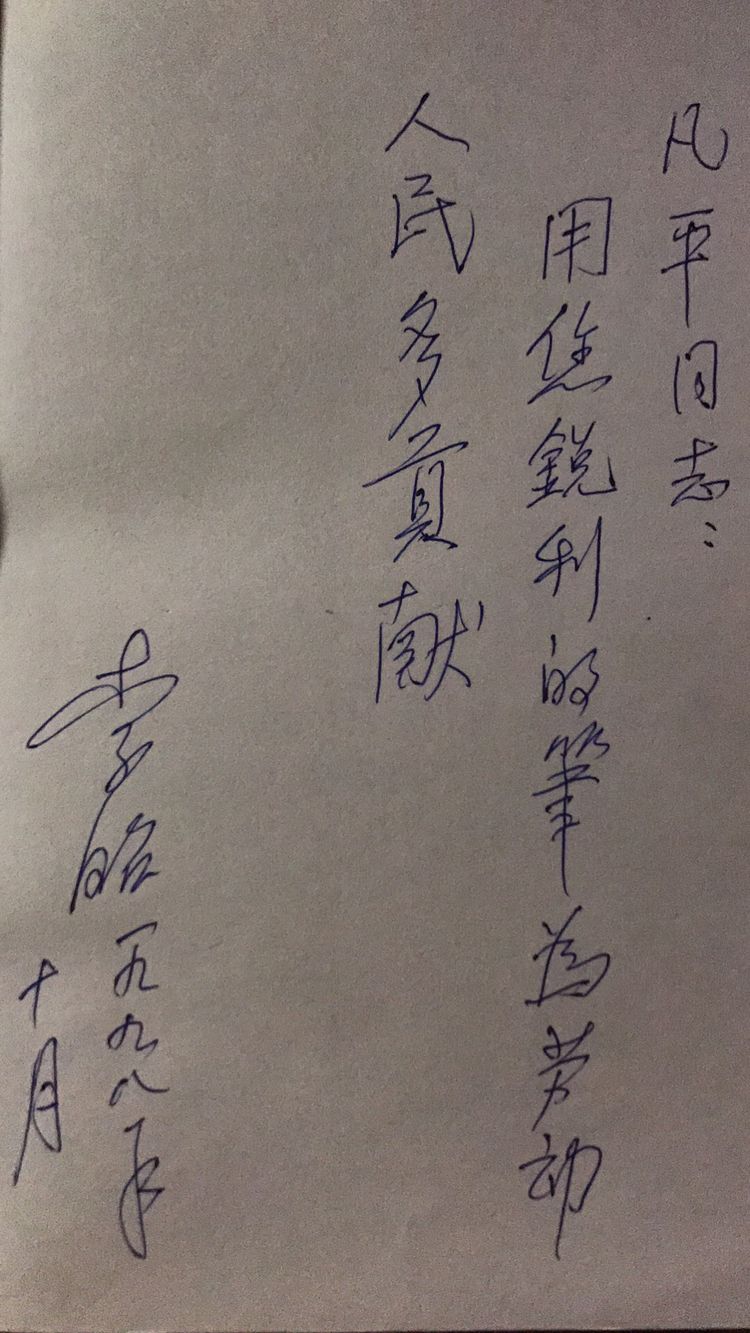 凡平同志：
用您銳利的筆為劳动
人民多貢献
李昭一九九八年
十月